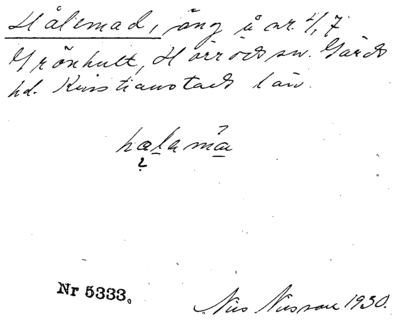 Hålemad, äng å nr. 4, 7
Grönhult, Hörröds sn. Gärds
hd. Kristianstads län.
Nr 5333.
Nils Nilsson 1930.